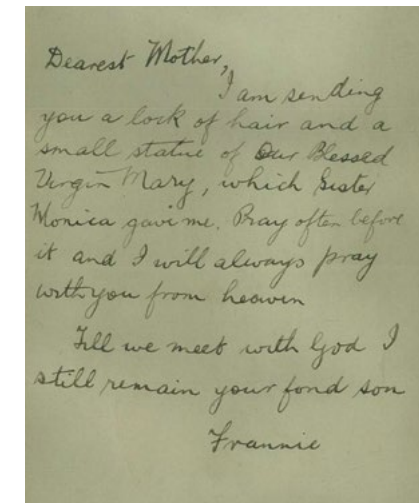 Dearest Mother,
I am sending
you a lock of hair and a
small statue of Our Blessed
Virgin Mary, which Sister
Monica gave me. Pray often before
it and I will always pray
with you from heaven
Till we meet with God I
still remain your fond son
Frannie